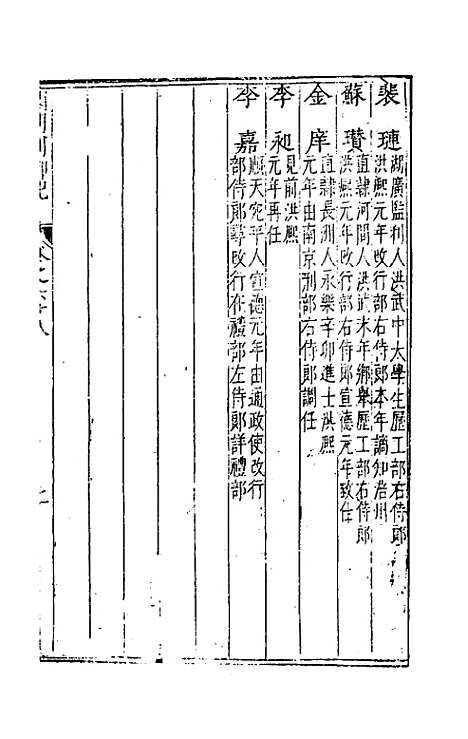 裴璉
湖廣監利人洪武中太學生歷工部右侍郎
洪熙元年改行部右侍郎本年謫知涪州
蘇瓚
直隸河間人洪武末年鄉舉歷工部右侍郎
洪熙元年改行部右侍郎宣德元年致仕
金庠
直隸長洲人永樂辛卯進士洪熙
元年由南京刑部右侍郎調任
李昶
見前洪熙
元年再任
李嘉
順天宛平人宣德元年由通政使改行
部侍郎尋改行在禮部左侍郎詳禮部
卷之六十八